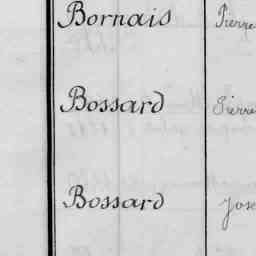 Bornais Pierre
Bossard Pierre
Bossard Jose